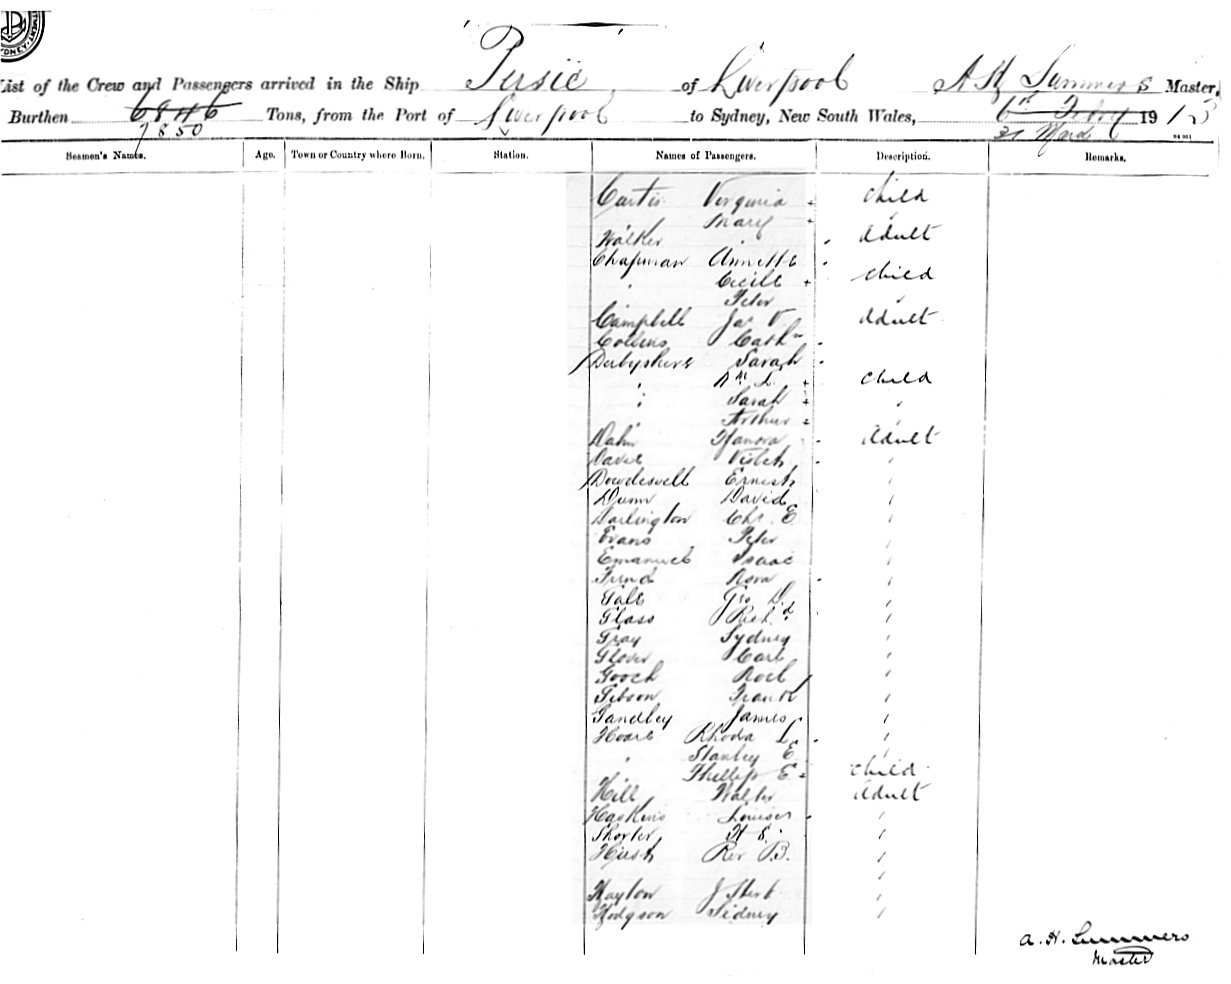 List of the Crew and Passengers arrived in the Ship Persic of Liverpool A H Summers Master,
Burthen 6846 Tons, from the Port of Liverpool to Sydney, New South Wales, 6th Febry 1913
7850 31 March
Seamen's Names. Age. Town or Country where Born. Station. Names of Passengers. Description. Remarks.
Curtis Virginia child
" Mary "
Walker " Adult
Chapman Annette "
" Cecile child
" Peter "
Campbell Jas V. Adult
Collins Cathn
Derbyshire Sarah
" Wm L. child
" Sarah "
" Arthur "
Dahn Hanora Adult
David Violet "
Dowdeswell Ernest "
Dunn David "
Darlington Chr. E. "
Evans Peter "
Emanuel Isaac "
Nora "
Gale Geo "
Glass Richd. "
Gray Sydney "
Glover Carl "
Gooch Noel "
Gibson Frank "
Gandley James "
Hoare Rhoda L. "
" Stanley E. "
Phillip E. child
Hill Walter Adult
Haskins Louisa "
Shorter H S. "
Hush Rev B. "
"
Haylon J "
Hodgson Sidney "
A. H. Summers
Master